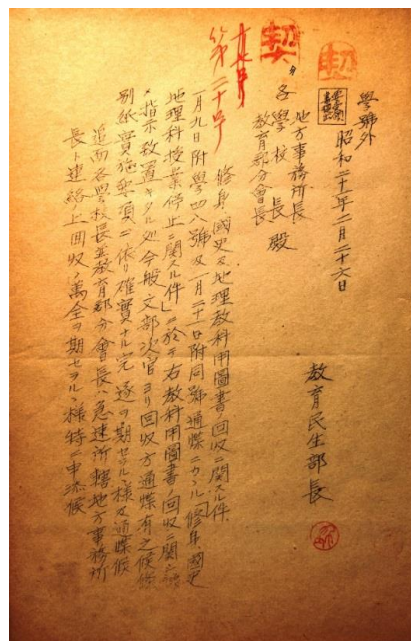 學號外
昭和二十一年二月二十六日
教育民生部長
地方事務所長
各學校長殿
教育部分會長
契
契
第二十号
修身、國史及地理教科用圖書ノ回収ニ関スル件
一月九日附學四八號及一月二十一日附同號通牒ニカヽル「修身、國史
地理科授業停止ニ関スル件」ニ於テ右教科用圖書ノ回収ニ関シ
指示致置キタル処今般文部次官ヨリ回収方通牒有之候條
別紙實施要項ニ依リ確實ナル完遂ヲ期セラルヽ様及通牒候
追而各學校長並教育部分會長ハ急速所轄地方事務所
長ト連絡上回収ノ萬全ヲ期セラルヽ様特ニ申添候